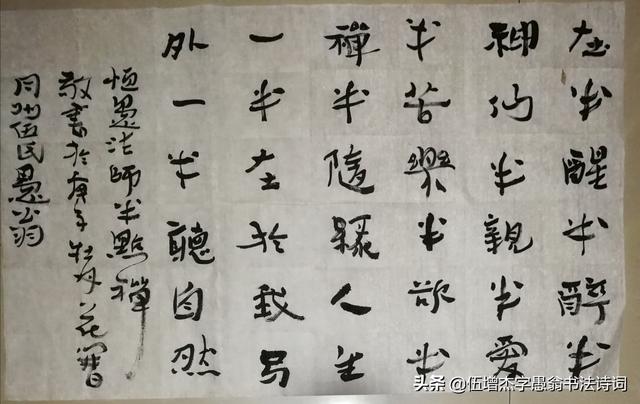 在半醒半醉半
神仙半親半愛
半苦樂半欲半
禪半隨緣人生
一半在於我另
外一半聽自然
恒愚法師半點禪
敬書於庚子牡丹花開
同州伍民愚翁
头条 @伍增杰字愚翁书法诗词